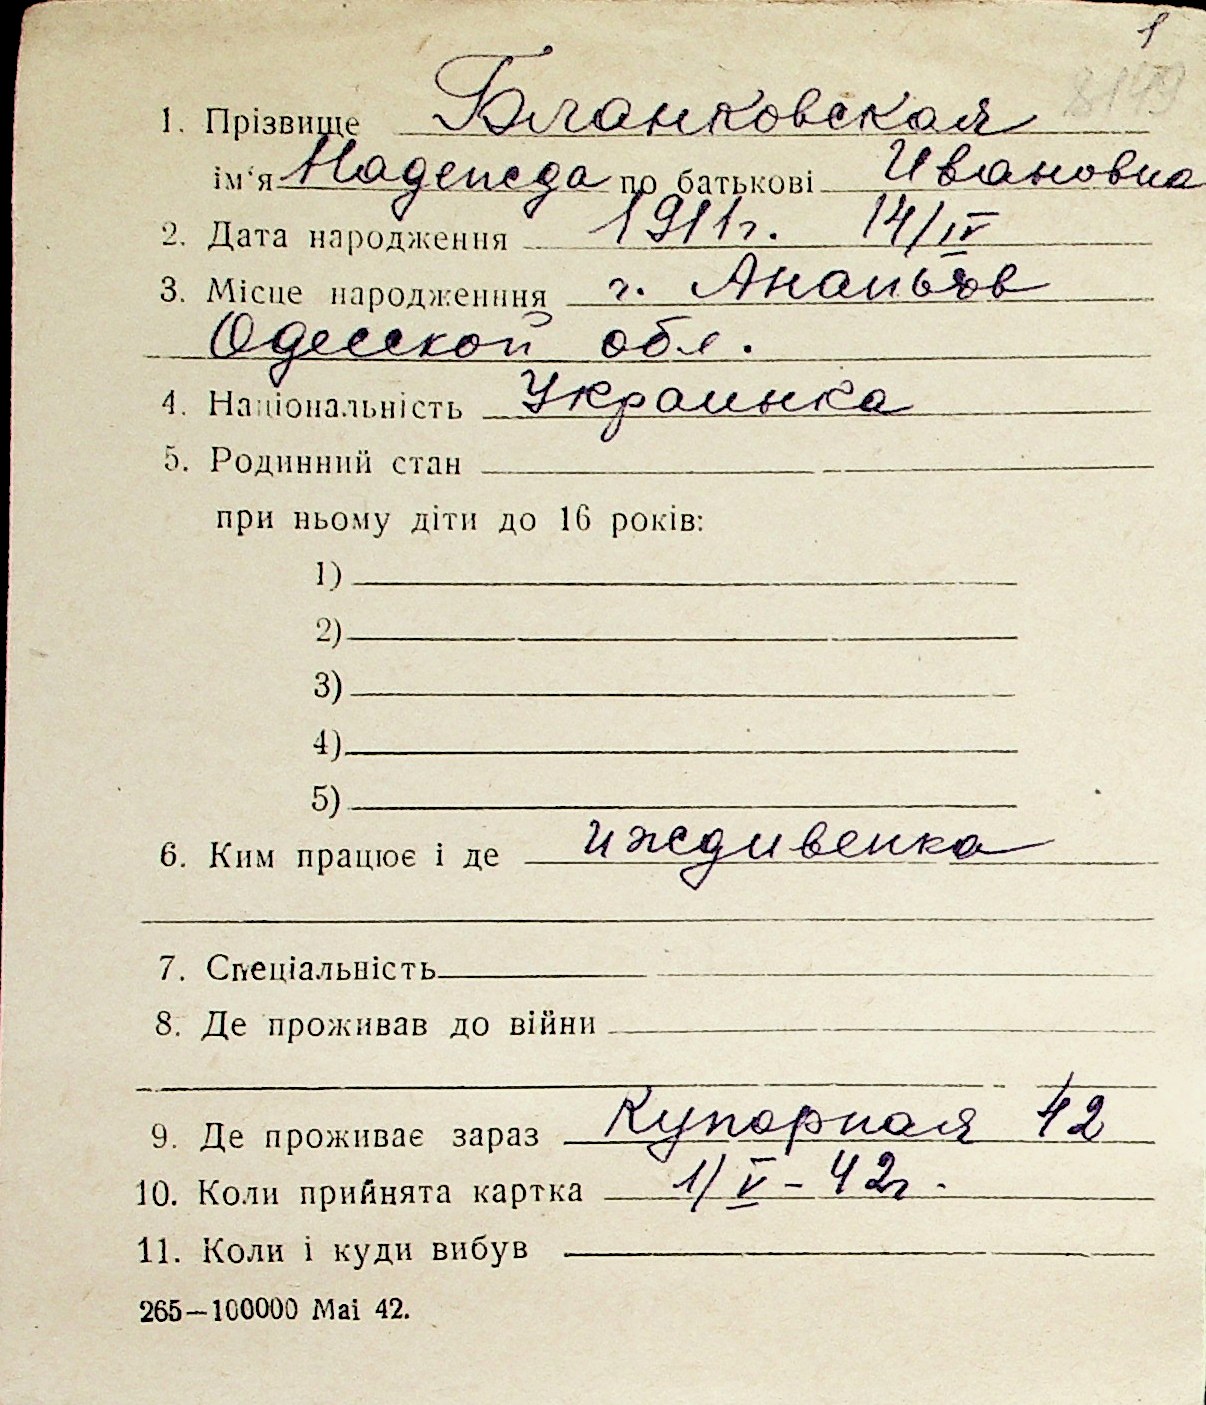 1
8149
1. Прізвище Бланковская
ім'я Надежда по батькові Ивановна
2. Дата народження 1911г. 14/IV
3. Місце народженння г. Ананьев
Одесской обл.
4. Національність Украинка
5. Родинний стан
при ньому діти до 16 років:
1)
2)
3)
4)
5)
6. Ким працює і де иждивенка
7. Спеціальність
8. Де проживав до війни
9. Де проживає зараз Купорная 42
10. Коли прийнята картка 1/V – 42г.
11. Коли і куди вибув
265—100000 Mai 42.